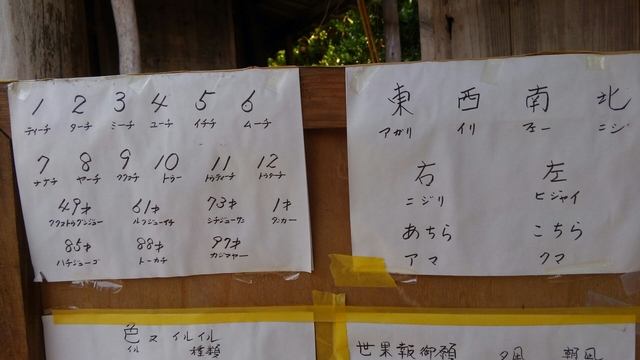 1 2 3 4 5 6
ティーチ ターチ ミーチ ユーチ イチチ ムーチ
7 8 9 10 11 12
ナナチ ヤーチ ククヌチ トゥー トゥティーチ トゥターチ
49才 61才 73才 1才
ククヌトゥグンジュー ルクジューイチ シチジューサン タンカー
85才 88才 97才
ハチジューゴ トーカチ カジマヤー
東 西 南 北
アガリ イリ フェー ニシ
右 左
ニジリ ヒジャイ
あちら こちら
アマ クマ
色ヌイルイル
イル 種類
世果報御願 夕凪 朝凪